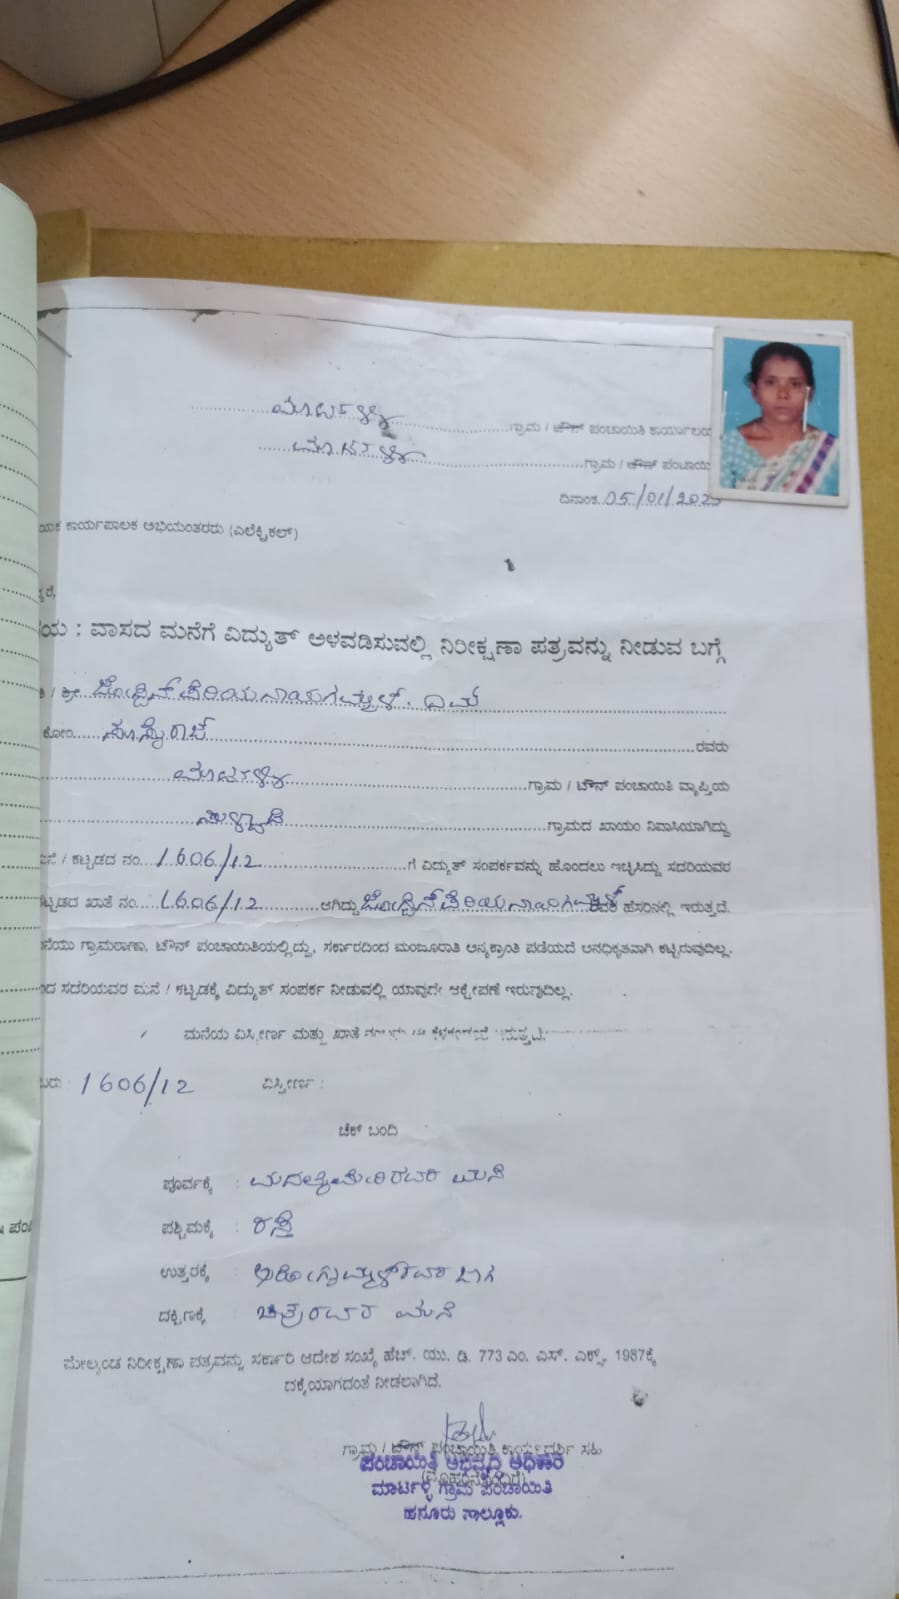 ಮಾರ್ಟಳ್ಳಿ ಗ್ರಾಮ / ಟೌನ್ ಪಂಚಾಯಿತಿ ಕಾರ್ಯಾಲಯ
ಮಾರ್ಟಳ್ಳಿ ಗ್ರಾಮ / ಟೌನ್ ಪಂಚಾಯಿ
ದಿನಾಂಕ 05/01/202
ಕಾರ್ಯಪಾಲಕ ಅಭಿಯಂತರರು (ಎಲೆಕ್ಟ್ರಿಕಲ್)
ವಾಸದ ಮನೆಗೆ ವಿದ್ಯುತ್ ಅಳವಡಿಸುವಲ್ಲಿ ನಿರೀಕ್ಷಣಾ ಪತ್ರವನ್ನು ನೀಡುವ ಬಗ್ಗೆ
/ ಶ್ರೀ
ಕೋಂ ರವರು
ಮಾರ್ಟಳ್ಳಿ ಗ್ರಾಮ / ಟೌನ್ ಪಂಚಾಯಿತಿ ವ್ಯಾಪ್ತಿಯ
ಗ್ರಾಮದ ಖಾಯಂ ನಿವಾಸಿಯಾಗಿದ್ದು
/ ಕಟ್ಟಡದ ನಂ. 1606/12 ಗೆ ವಿದ್ಯುತ್ ಸಂಪರ್ಕವನ್ನು ಹೊಂದಲು ಇಚ್ಛಿಸಿದ್ದು ಸದರಿಯವರ
ಖಾತೆ ನಂ. 1606/12 ಆಗಿದ್ದು ರವರ ಹೆಸರಿನಲ್ಲಿ ಇರುತ್ತದೆ.
ಗ್ರಾಮಠಾಣಾ, ಟೌನ್ ಪಂಚಾಯಿತಿಯಲ್ಲಿದ್ದು, ಸರ್ಕಾರದಿಂದ ಮಂಜೂರಾತಿ ಅನ್ಯಕ್ರಾಂತಿ ಪಡೆಯದೆ ಅನಧಿಕೃತವಾಗಿ ಕಟ್ಟಿರುವುದಿಲ್ಲ.
ಸದರಿಯವರ ಮನೆ / ಕಟ್ಟಡಕ್ಕೆ ವಿದ್ಯುತ್ ಸಂಪರ್ಕ ನೀಡುವಲ್ಲಿ ಯಾವುದೇ ಆಕ್ಷೇಪಣೆ ಇರುವುದಿಲ್ಲ.
ಮನೆಯ ವಿಸ್ತೀರ್ಣ ಮತ್ತು ಖಾತೆ
1606/12 ವಿಸ್ತೀರ್ಣ :
ಚೆಕ್ ಬಂದಿ
ಪೂರ್ವಕ್ಕೆ : ಮನೆ
ಪಶ್ಚಿಮಕ್ಕೆ : ರಸ್ತೆ
ಉತ್ತರಕ್ಕೆ :
ದಕ್ಷಿಣಕ್ಕೆ : ಮನೆ
ಮೇಲ್ಕಂಡ ನಿರೀಕ್ಷಣಾ ಪತ್ರವನ್ನು ಸರ್ಕಾರಿ ಆದೇಶ ಸಂಖ್ಯೆ ಹೆಚ್. ಯು. ಡಿ. 773 ಎಂ. ಎಸ್. ಎಕ್ಸ್. 1987ಕ್ಕೆ
ದಕ್ಕೆಯಾಗದಂತೆ ನೀಡಲಾಗಿದೆ.
ಗ್ರಾಮ / ಟೌನ್ ಪಂಚಾಯಿತಿ ಕಾರ್ಯದರ್ಶಿ ಸಹಿ
ಪಂಚಾಯಿತಿ ಅಭಿವೃದ್ಧಿ ಅಧಿಕಾರಿ
ಮಾರ್ಟಳ್ಳಿ ಗ್ರಾಮ ಪಂಚಾಯಿತಿ
ಹನೂರು ತಾಲ್ಲೂಕು.